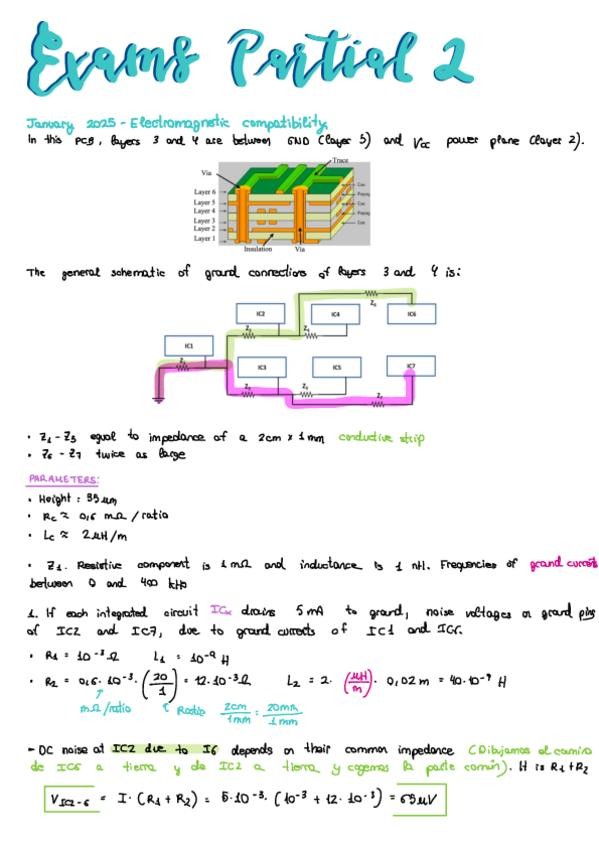 Exams Partial 2
January 2025 - Electromagnetic compatibility
In this PCB, layers 3 and 4 are between GND (layer 5) and Vcc power plane (layer 2).
Trace
Via
Layer 6
Layer 5
Layer 4
Layer 3
Layer 2
Layer 1
Core
Prepreg
Core
Prepreg
Core
Insulation Via
The general schematic of ground connections of layers 3 and 4 is:
IC2 IC4 IC6
IC1
IC3 IC5 IC7
• Z1 - Z5 equal to impedance of a 2cm x 1mm conductive strip
• Z6 - Z7 twice as large
PARAMETERS:
• Height: 35μm
• Rc ≈ 0,6 mΩ / ratio
• Lc ≈ 2μH/m
• Z1. Resistive component is 1 mΩ and inductance is 1 nH. Frequencies of ground currents
between 0 and 400 kHz
1. If each integrated circuit ICx drains 5mA to ground, noise voltages on ground pins
of IC2 and IC7, due to ground currents of IC1 and IC6.
• R1 = 10⁻³ Ω L1 = 10⁻⁹ H
• R2 = 0,6 · 10⁻³ · (20/1) = 12·10⁻³ Ω L2 = 2 · (μH/m) · 0,02 m = 40·10⁻⁹ H
mΩ/ratio Ratio 2cm/1mm = 20mm/1mm
- DC noise at IC2 due to I6 depends on their common impedance (Dibujamos el camino
de IC6 a tierra y de IC2 a tierra y cogemos la parte común). It is R1 + R2
V_IC2-6 = I · (R1 + R2) = 5·10⁻³ · (10⁻³ + 12·10⁻³) = 65μV